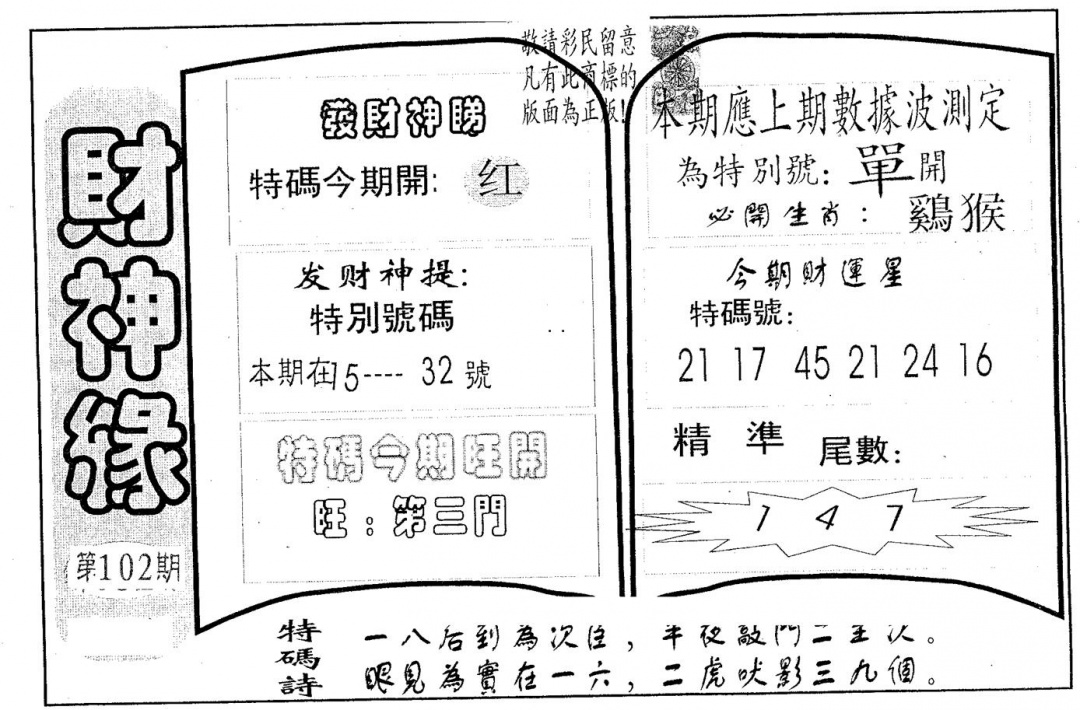 敬請彩民留意
凡有此商標的
版面為正版!
財神緣
第102期
發財神睇
特碼今期開: 红
发财神提:
特别號碼
本期在15---- 32號
特碼今期旺開
旺:第三門
本期應上期數據波測定
為特別號: 單開
必開生肖: 鷄猴
今期財運星
特碼號:
21 17 45 21 24 16
精準 尾數:
1 4 7
特碼詩
一八后到為次住,半夜敲門二至次。
眼見為實在一六,二虎吠影三九個。